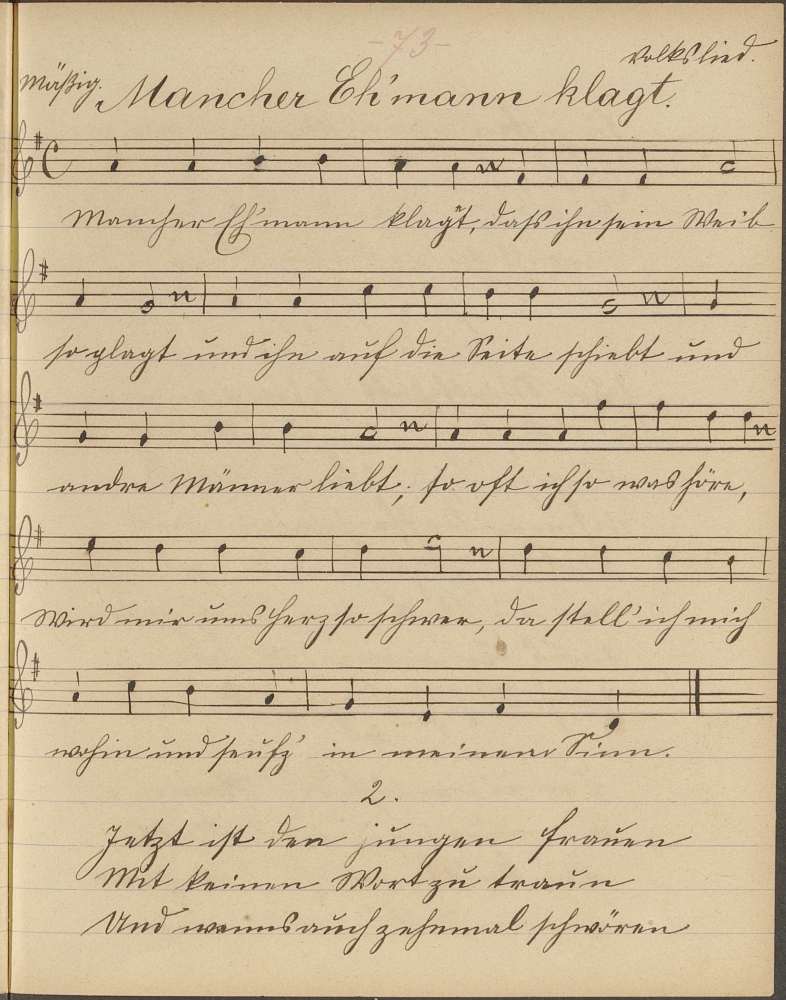 -73-
Volkslied.
Mäßig.
Mancher Eh'mann klagt.
Mancher Eh'mann klagt, dass ihn sein Weib
so plagt und ihn auf die Seite schiebt und
andre Männer liebt; so oft ich so was höre,
Wird mir ums Herz so schwer, da stell' ich mich
wohin und seufz' in meinem Sinn.
2.
Jetzt ist den jungen Frauen
Mit keinen Wort zu traun
Und wenns auch zehnmal schwören